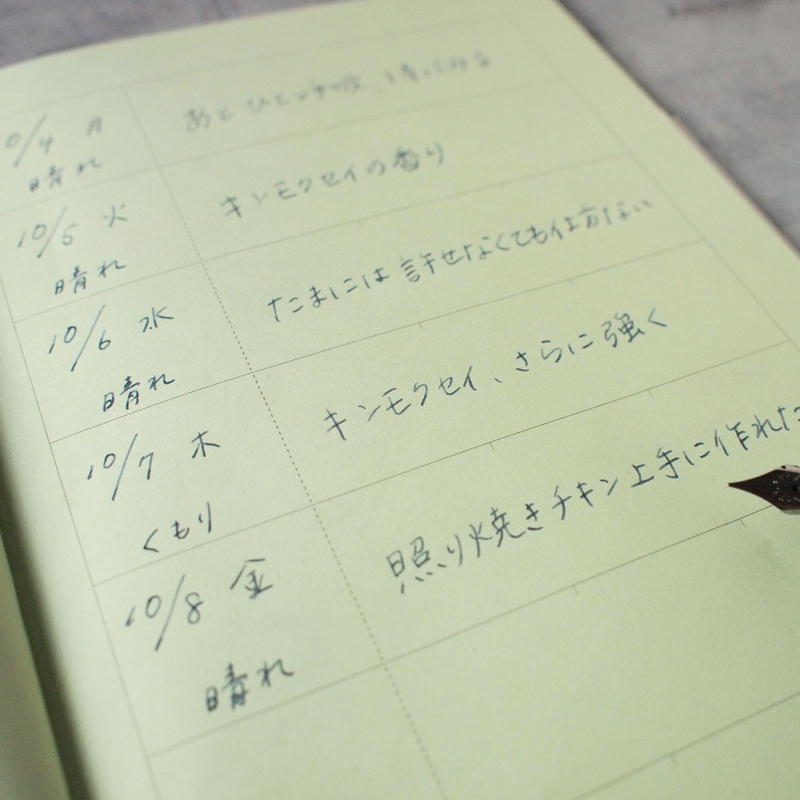 10/4 月
晴れ
あと ひと呼吸、待ってみる
10/5 火
晴れ
キンモクセイの香り
10/6 水
晴れ
たまには 許せなくても仕方ない
10/7 木
くもり
キンモクセイ、さらに強く
10/8 金
晴れ
照り焼きチキン上手に作れた